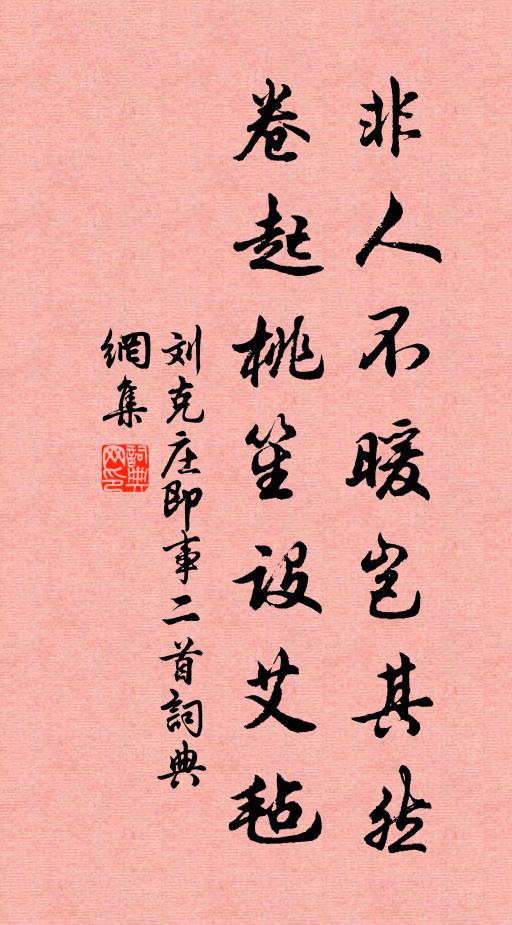 非人不暖岂其然
卷起桃笙设艾毡
刘克庄即事二首詞典
網集
詞典
网印